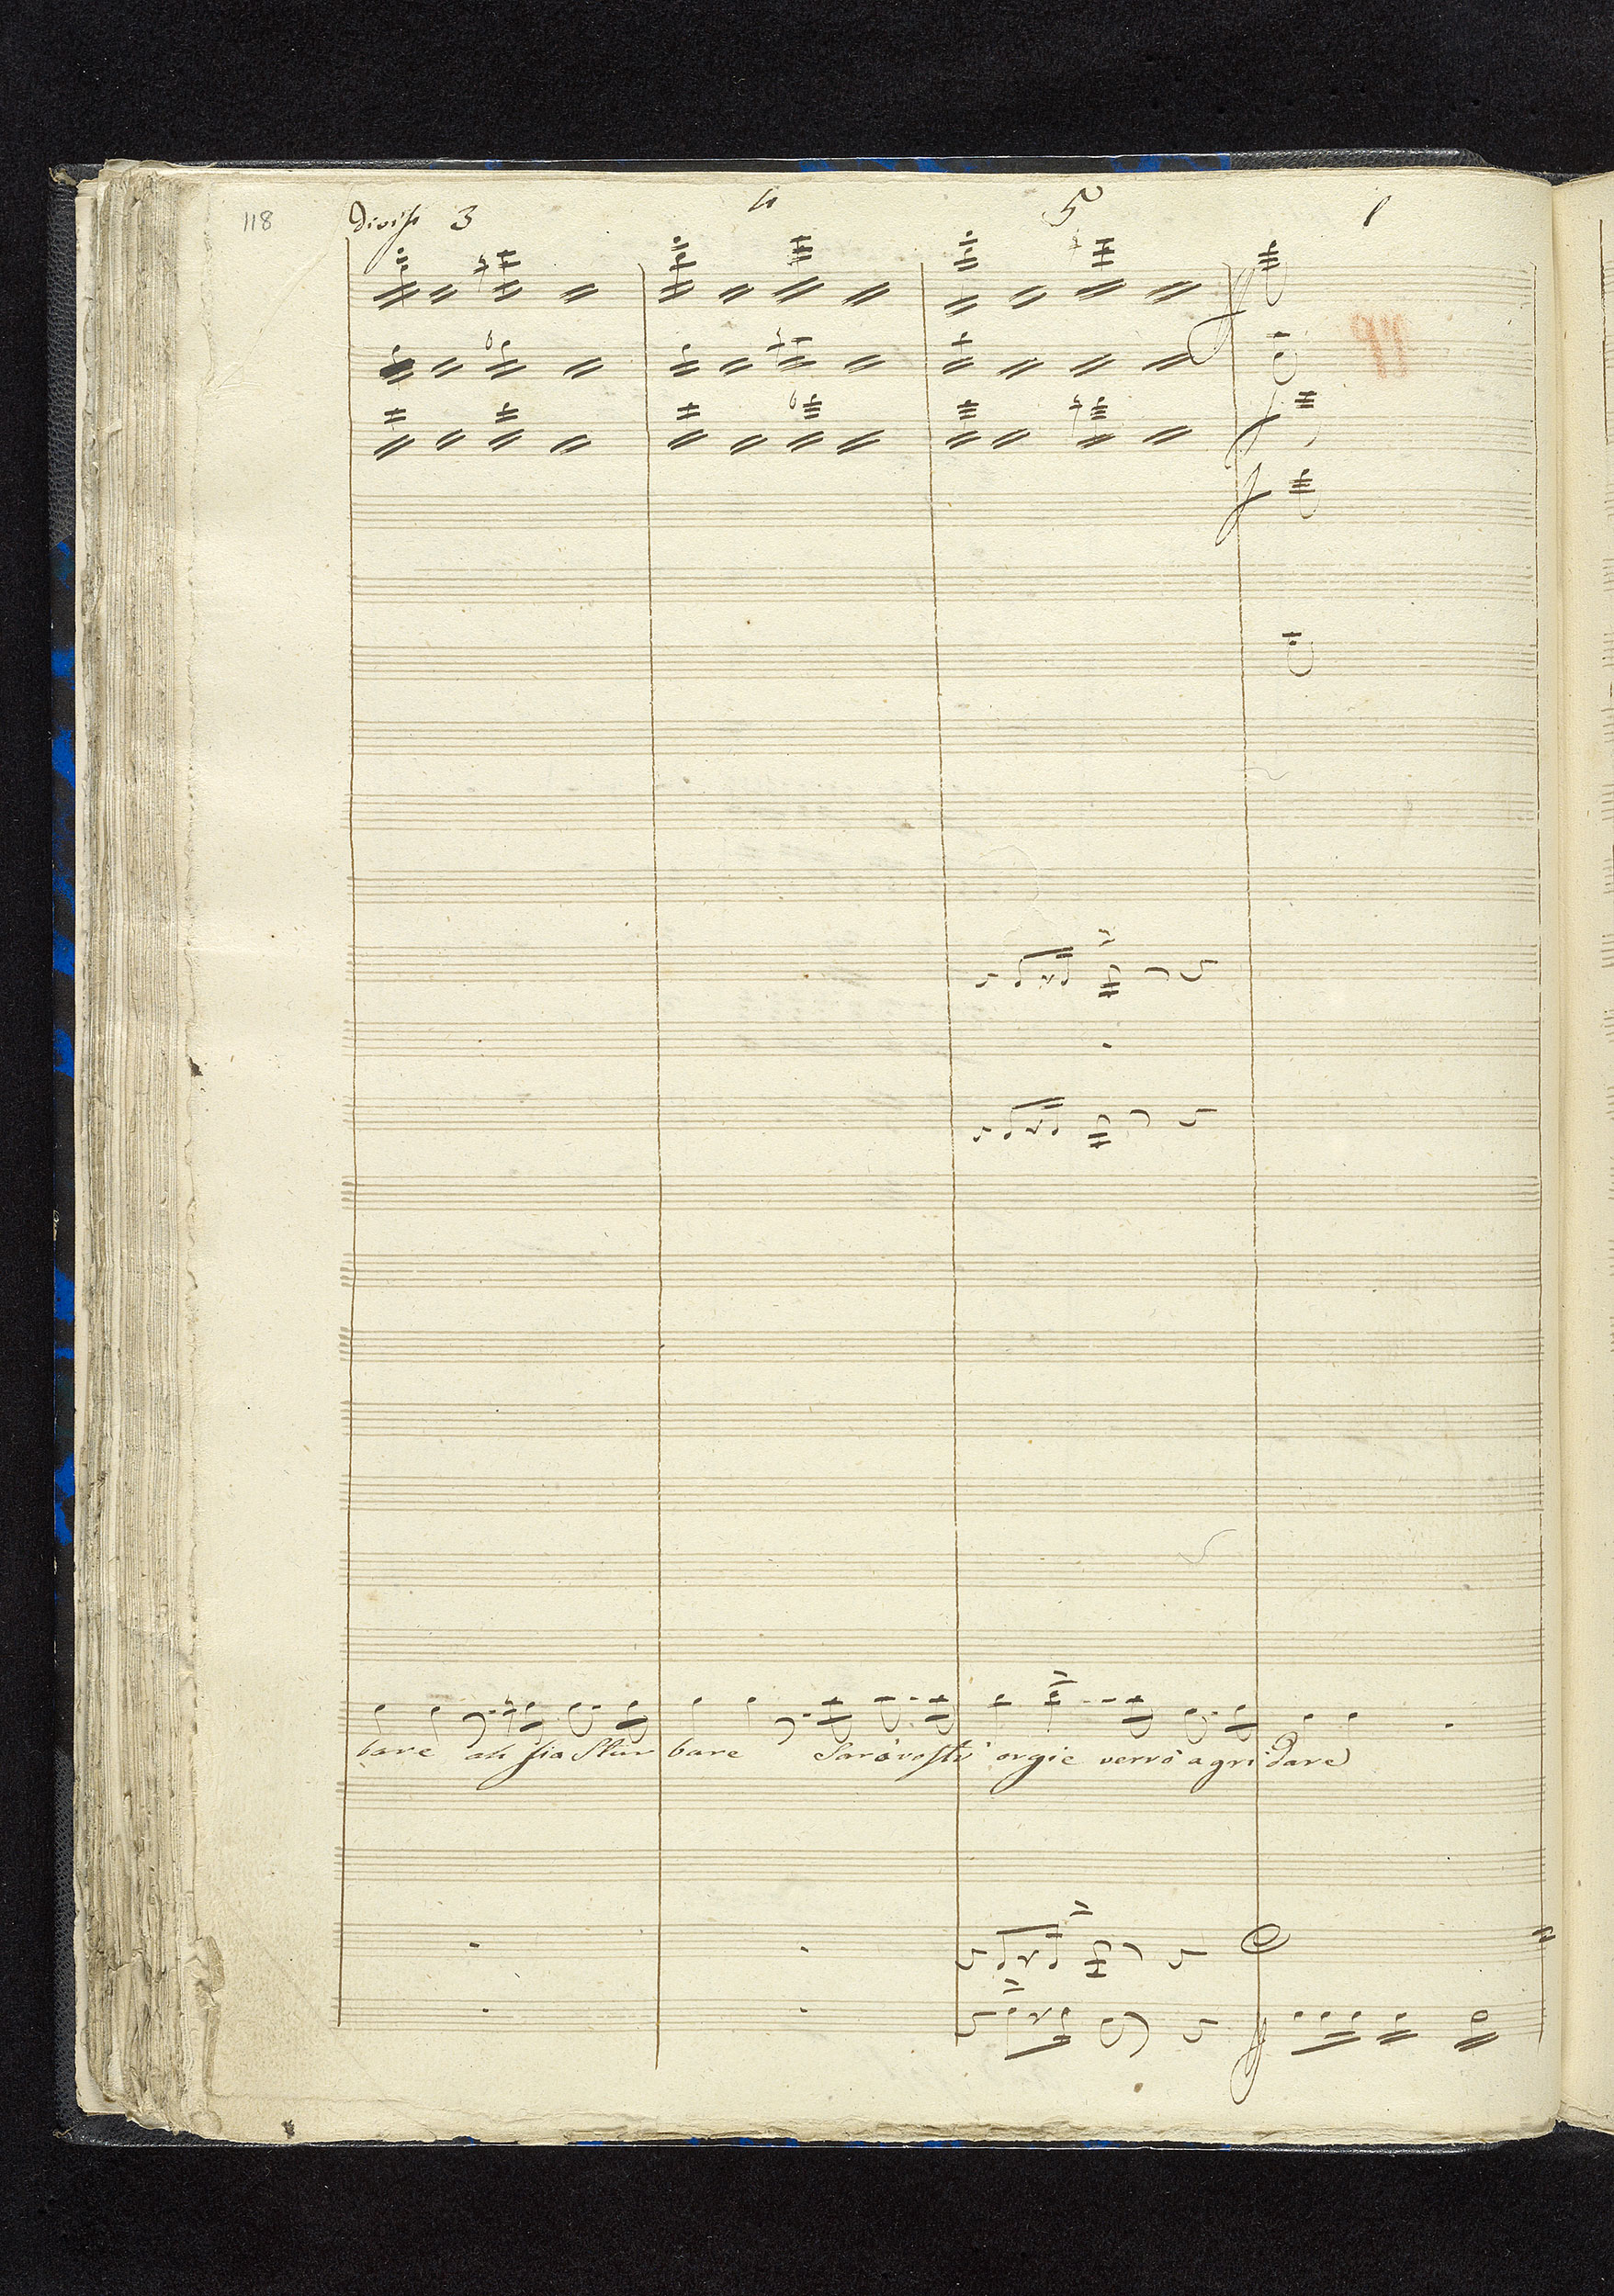 118
divisi 3 4 5 1
bare ah sia Stur bare Saró vostr' orgie verró a gri dare